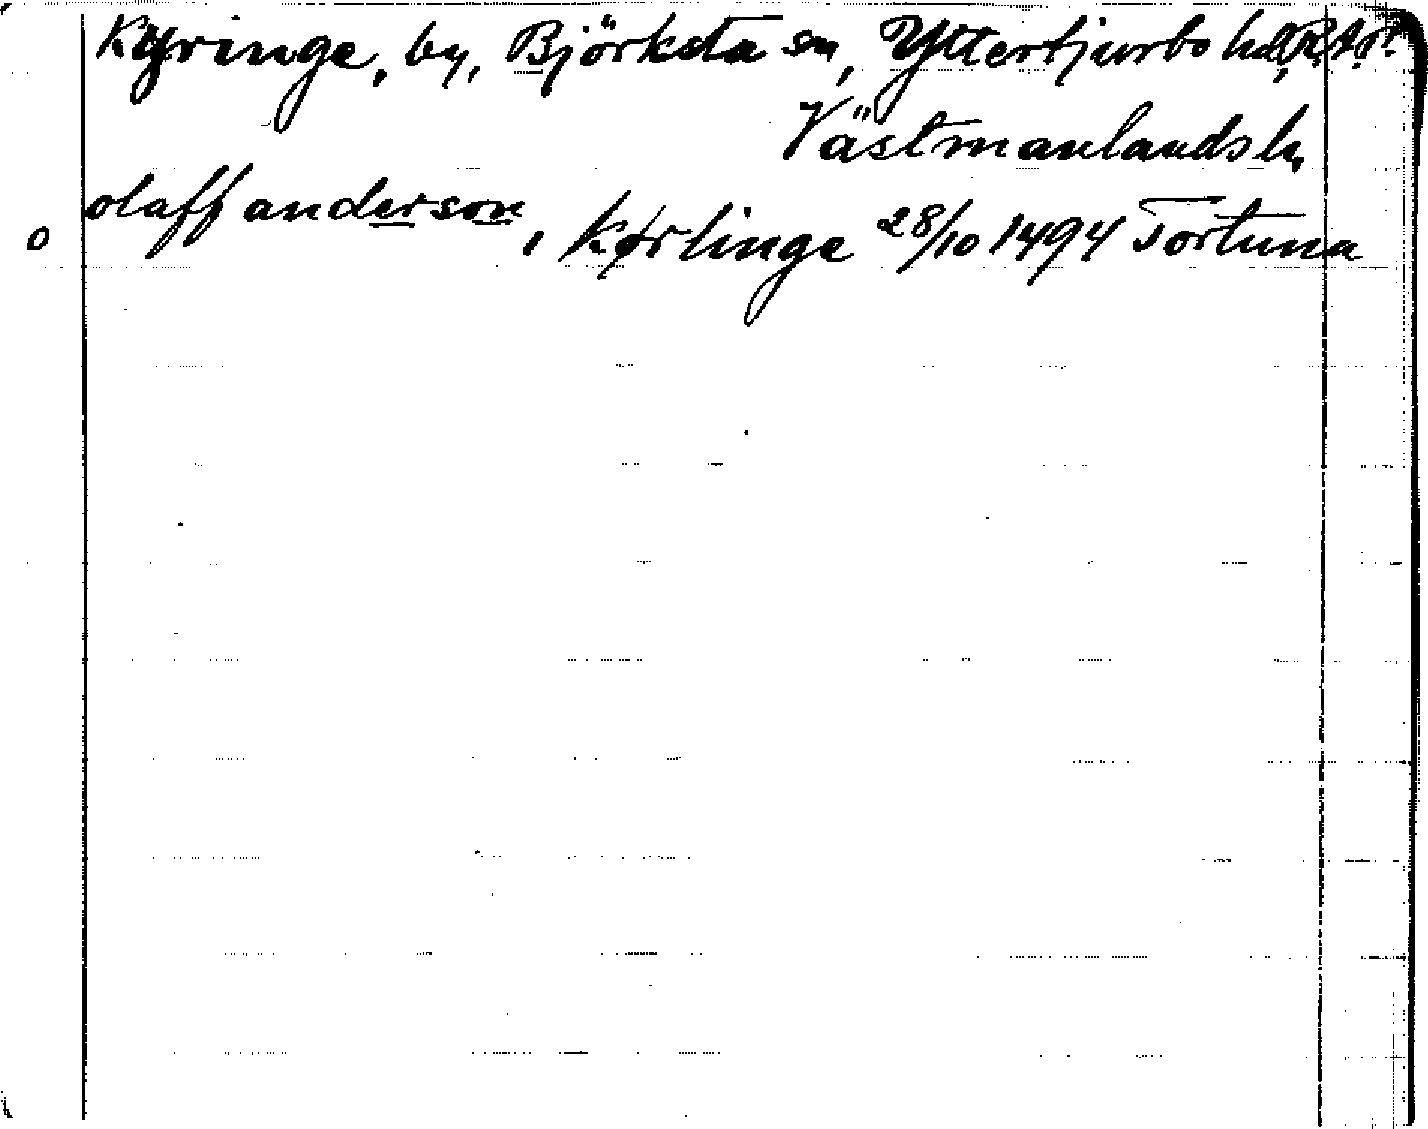 Kyringe, by, Björksta sn, Yttertjurbo hd, R.A.P.
Västmanlands l.,
o olaff anderson, kørlinge 28/10 1494 Tortuna